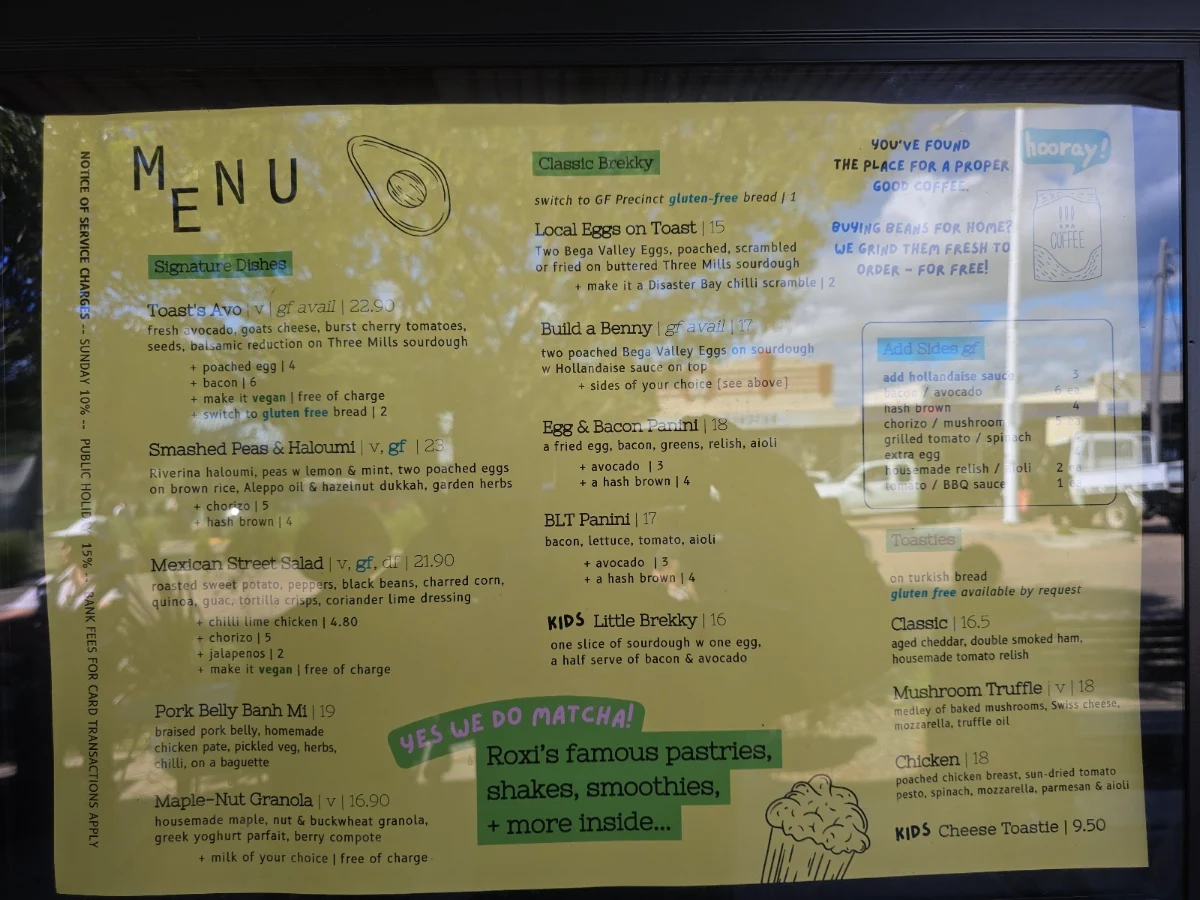 NOTICE OF SERVICE CHARGES -- SUNDAY 10% -- PUBLIC HOLIDAY 15% -- BANK FEES FOR CARD TRANSACTIONS APPLY
MENU
Signature Dishes
Toast's Avo | v | gf avail | 22.90
fresh avocado, goats cheese, burst cherry tomatoes,
seeds, balsamic reduction on Three Mills sourdough
+ poached egg | 4
+ bacon | 6
+ make it vegan | free of charge
+ switch to gluten free bread | 2
Smashed Peas & Haloumi | v, gf | 23
Riverina haloumi, peas w lemon & mint, two poached eggs
on brown rice, Aleppo oil & hazelnut dukkah, garden herbs
+ chorizo | 5
+ hash brown | 4
Mexican Street Salad | v, gf, df | 21.90
roasted sweet potato, peppers, black beans, charred corn,
quinoa, guac, tortilla crisps, coriander lime dressing
+ chilli lime chicken | 4.80
+ chorizo | 5
+ jalapenos | 2
+ make it vegan | free of charge
Pork Belly Banh Mi | 19
braised pork belly, homemade
chicken pate, pickled veg, herbs,
chilli, on a baguette
Maple-Nut Granola | v | 16.90
housemade maple, nut & buckwheat granola,
greek yoghurt parfait, berry compote
+ milk of your choice | free of charge
Classic Brekky
switch to GF Precinct gluten-free bread | 1
Local Eggs on Toast | 15
Two Bega Valley Eggs, poached, scrambled
or fried on buttered Three Mills sourdough
+ make it a Disaster Bay chilli scramble | 2
Build a Benny | gf avail | 17
two poached Bega Valley Eggs on sourdough
w Hollandaise sauce on top
+ sides of your choice [see above]
Egg & Bacon Panini | 18
a fried egg, bacon, greens, relish, aioli
+ avocado | 3
+ a hash brown | 4
BLT Panini | 17
bacon, lettuce, tomato, aioli
+ avocado | 3
+ a hash brown | 4
KIDS Little Brekky | 16
one slice of sourdough w one egg,
a half serve of bacon & avocado
YES WE DO MATCHA!
Roxi's famous pastries,
shakes, smoothies,
+ more inside...
YOU'VE FOUND
THE PLACE FOR A PROPER
GOOD COFFEE.
BUYING BEANS FOR HOME?
WE GRIND THEM FRESH TO
ORDER - FOR FREE!
hooray!
COFFEE
Add Sides gf
add hollandaise sauce 3
bacon / avocado 6 ea
hash brown 4
chorizo / mushroom 5 ea
grilled tomato / spinach
extra egg
housemade relish / aioli 2 ea
tomato / BBQ sauce 1 ea
Toasties
on turkish bread
gluten free available by request
Classic | 16.5
aged cheddar, double smoked ham,
housemade tomato relish
Mushroom Truffle | v | 18
medley of baked mushrooms, Swiss cheese,
mozzarella, truffle oil
Chicken | 18
poached chicken breast, sun-dried tomato
pesto, spinach, mozzarella, parmesan & aioli
KIDS Cheese Toastie | 9.50